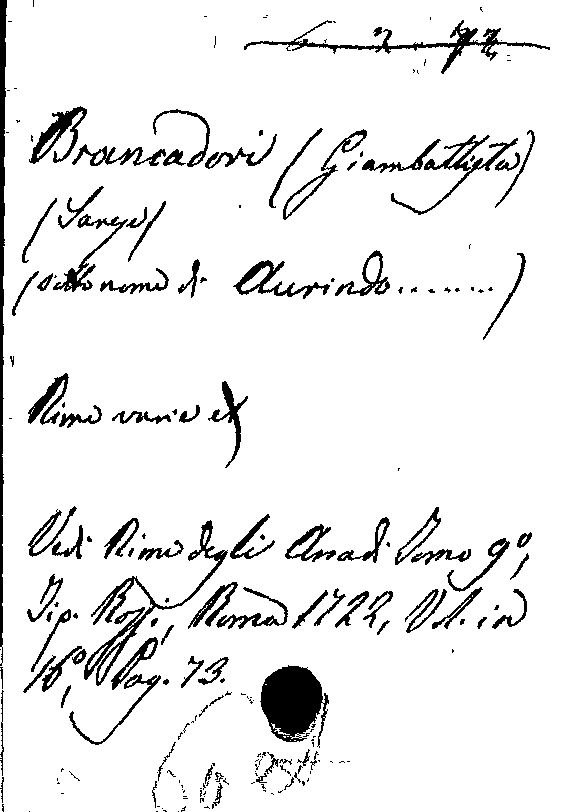 Brancadori (Giambattista)
(Sanese)
(sotto nome di Aurindo.......)
Rime varie
Vedi Rime degli Arcadi Tomo 9º,
Tip. Rossi, Roma 1722, Vol. in
16º, Pag. 73.